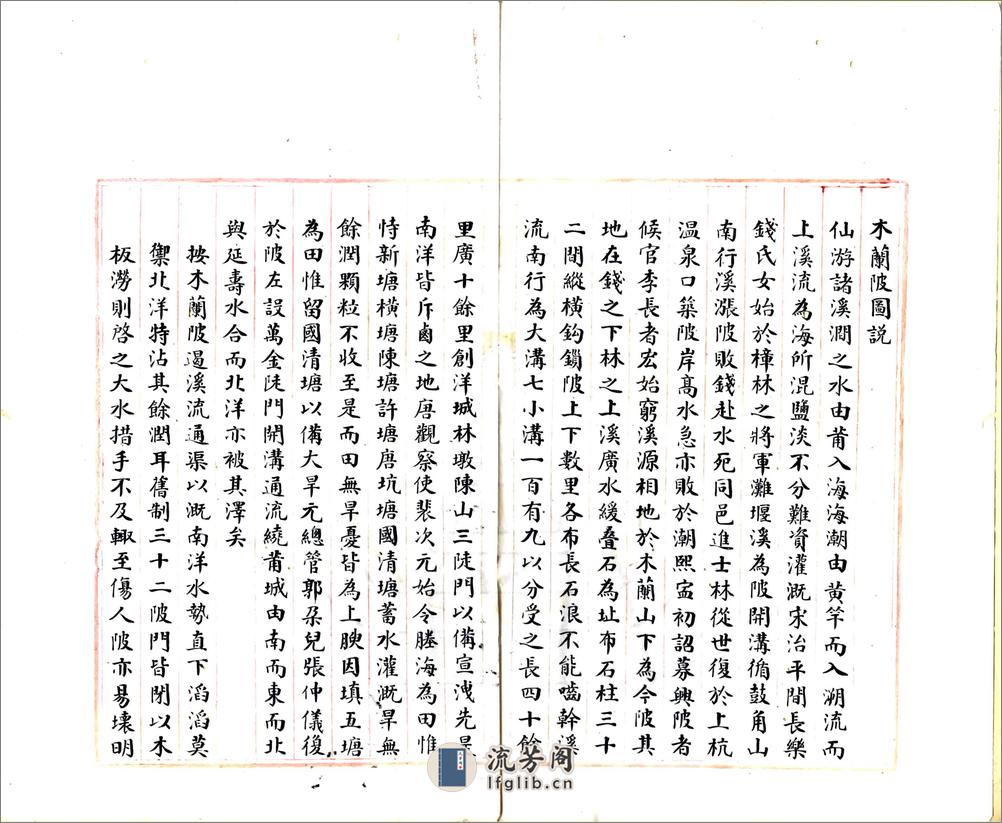 木蘭陂圖説
仙游諸溪澗之水由莆入海海潮由黃竿而入溯流而
上溪流為海所混鹽淡不分難資灌溉宋治平間長樂
錢氏女始於樟林之將軍灘堰溪為陂開溝循鼓角山
南行溪漲陂敗錢赴水死同邑進士林從世復於上杭
温泉口築陂岸髙水急亦敗於潮熙寍初詔募興陂者
候官李長者宏始窮溪源相地於木蘭山下為今陂其
地在錢之下林之上溪廣水緩叠石為址布石柱三十
二間縱橫鈎鎻陂上下數里各布長石浪不能嚙幹溪
流南行為大溝七小溝一百有九以分受之長四十餘
里廣十餘里創洋城林墩陳山三陡門以備宣洩先是
南洋皆斥鹵之地唐觀察使裴次元始令塍海為田惟
恃新塘橫塘陳塘許塘唐坑塘國清塘蓄水灌溉旱無
餘潤顆粒不收至是而田無旱憂皆為上腴因填五塘
為田惟留國清塘以備大旱元總管郭朶兒張仲儀復
於陂左設萬金陡門開溝通流繞莆城由南而東而北
與延壽水合而北洋亦被其澤矣
按木蘭陂遏溪流通渠以溉南洋水勢直下滔滔莫
禦北洋特沾其餘潤耳舊制三十二陂門皆閉以木
板澇則啓之大水措手不及輙至傷人陂亦易壞明
流芳阁
lfglib.cn